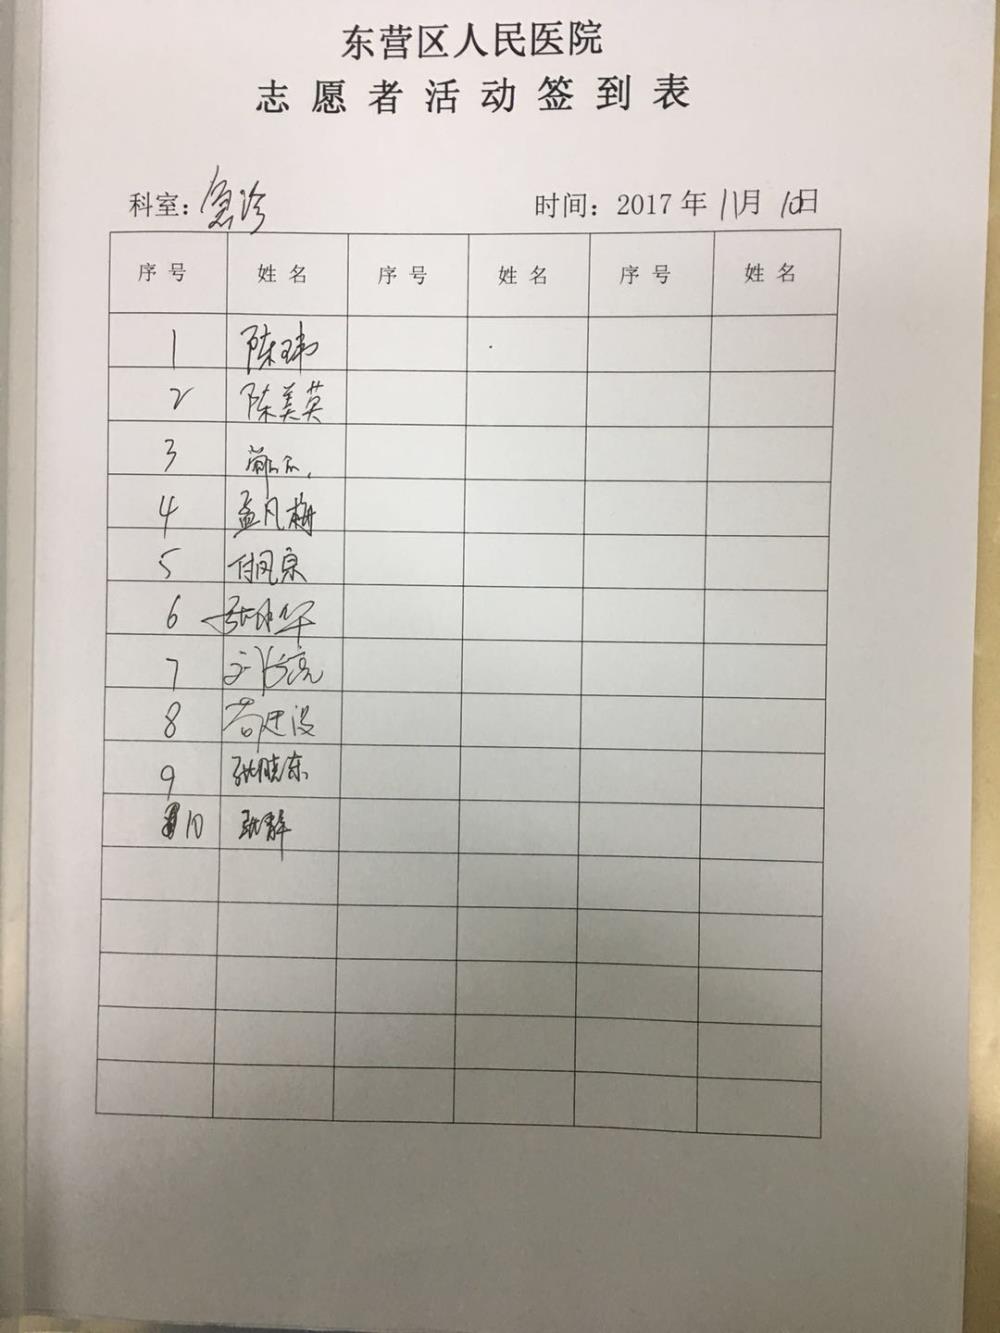 东营区人民医院
志愿者活动签到表
科室：急诊 时间：2017年11月10日
序号 姓名 序号 姓名 序号 姓名
1 陈玮
2 陈美英
3
4 孟凡梅
5 付凤泉
6 张华
7 亮
8 苟廷
9 张晓东
10 张静